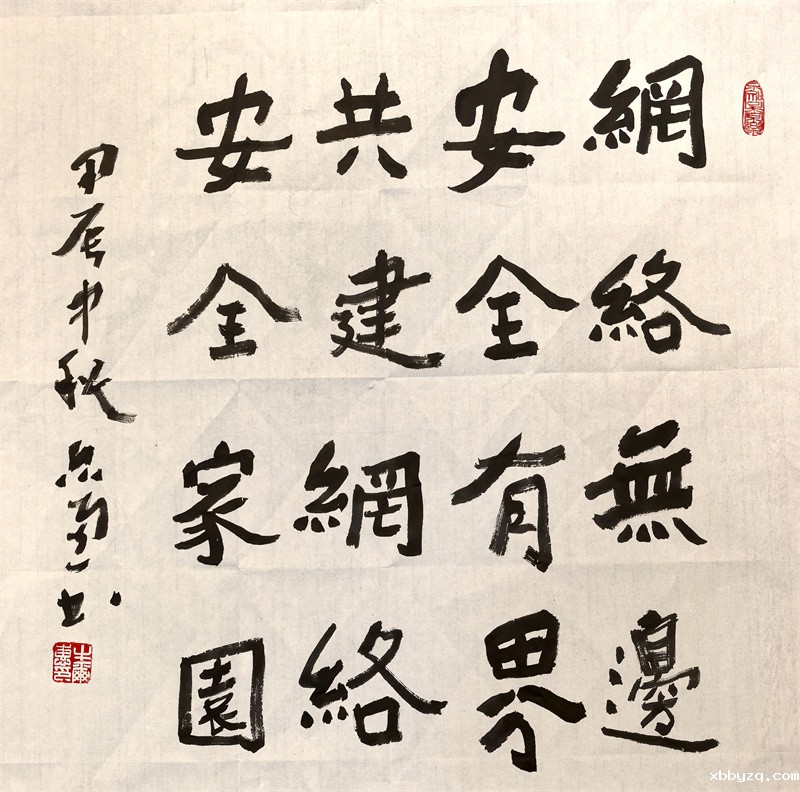 網絡無邊
安全有界
共建網絡
安全家園
甲辰中秋
書
xbbyzq.com